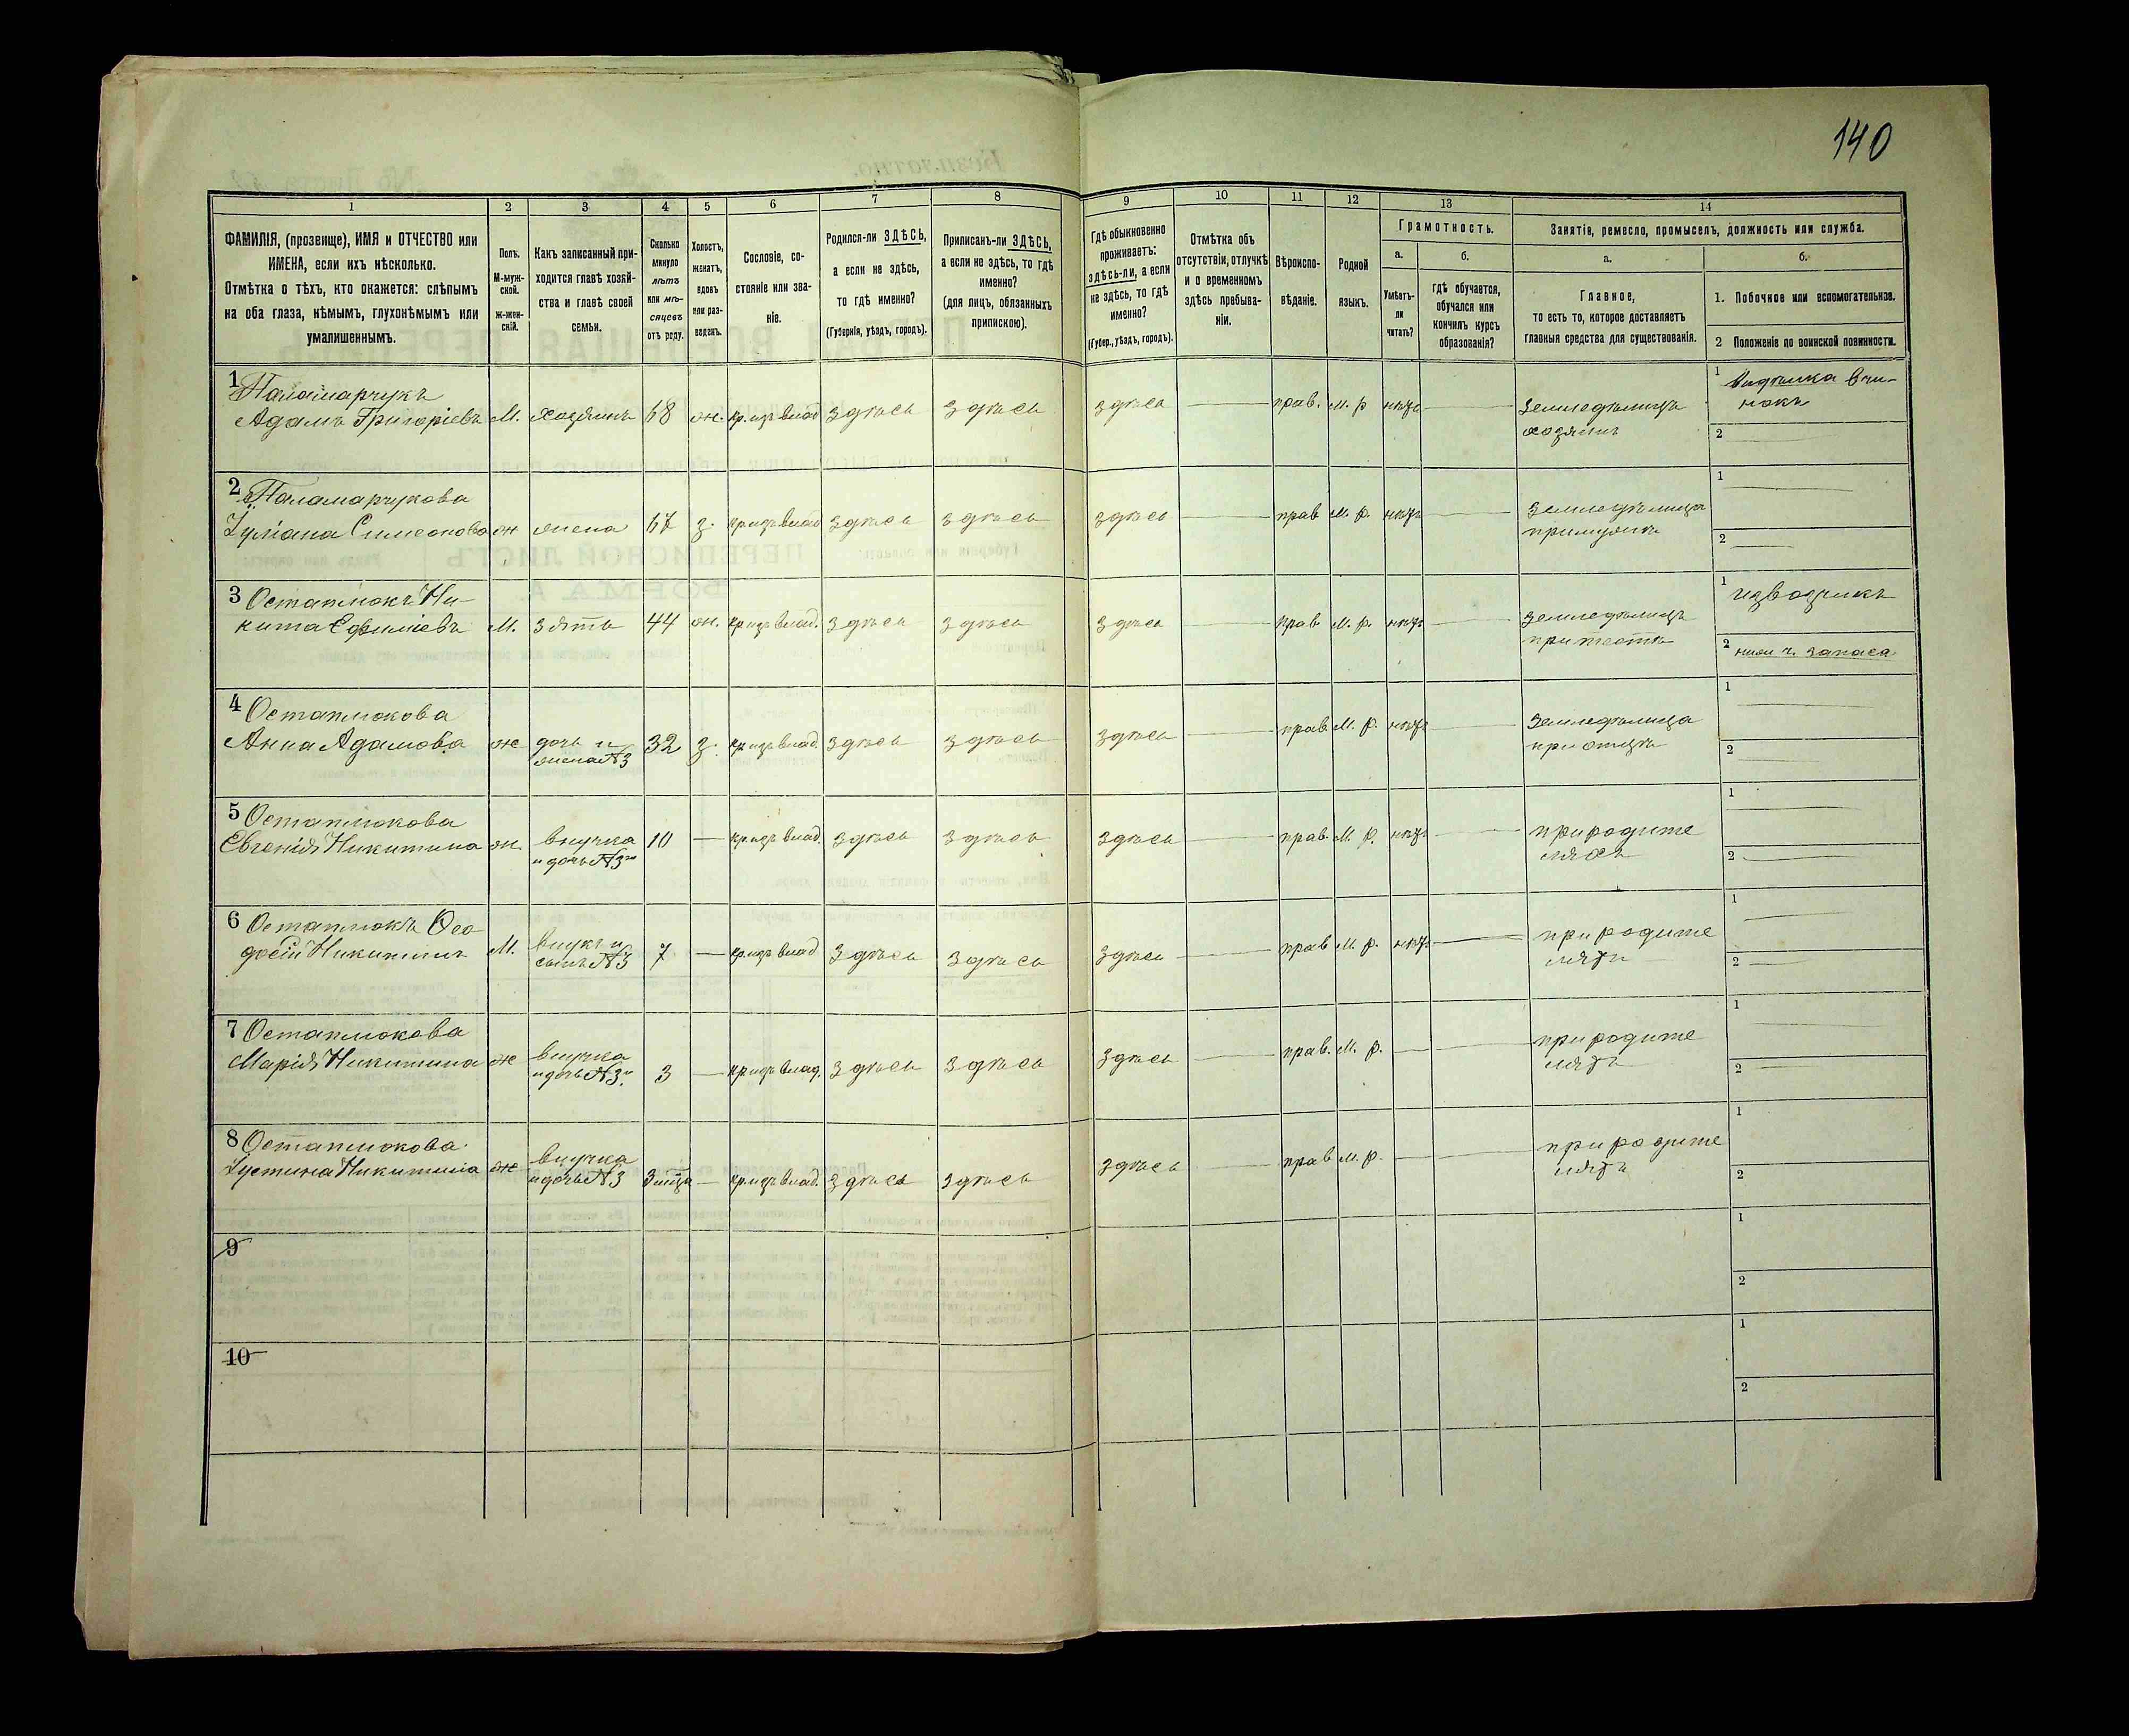 140
1
2
3
4
5
6
7
8
9
10
11
12
13
14
ФАМИЛІЯ, (прозвище), ИМЯ и ОТЧЕСТВО или
ИМЕНА, если ихъ нѣсколько.
Отмѣтка о тѣхъ, кто окажется: слѣпымъ
на оба глаза, нѣмымъ, глухонѣмымъ или
умалишеннымъ.
Полъ.
М-муж-
ской.
ж-жен-
скій.
Какъ записанный при-
ходится главѣ хозяй-
ства и главѣ своей
семьи.
Сколько
минуло
лѣтъ
или мѣ-
сяцевъ
отъ роду.
Холостъ,
женатъ,
вдовъ
или раз-
веденъ.
Сословіе, со-
стояніе или зва-
ніе.
Родился-ли ЗДѢСЬ,
а если не здѣсь,
то гдѣ именно?
(Губернія, уѣздъ, городъ).
Приписанъ-ли ЗДѢСЬ,
а если не здѣсь, то гдѣ
именно?
(для лицъ, обязанныхъ
припискою).
Гдѣ обыкновенно
проживаетъ:
здѣсь-ли, а если
не здѣсь, то гдѣ
именно?
(Губер., уѣздъ, городъ).
Отмѣтка объ
отсутствіи, отлучкѣ
и о временномъ
здѣсь пребыва-
ніи.
Вѣроиспо-
вѣданіе.
Родной
языкъ.
Грамотность.
а.
Умѣетъ-
ли
читать?
б.
гдѣ обучается,
обучался или
кончилъ курсъ
образованія?
Занятіе, ремесло, промыселъ, должность или служба.
а.
Главное,
то есть то, которое доставляетъ
главныя средства для существованія.
б.
1. Побочное или вспомогательное.
2 Положеніе по воинской повинности.
1 Паламарчукъ
Адамъ Григоріевъ М. хозяинъ 68 ж. кр. изъ влад здѣсь здѣсь здѣсь прав. м. р нѣтъ Земледѣлецъ
хозяинъ
1
2
2 Паламарчукова
Іуліана Симеонова ж жена 67 з. кр изъ влад здѣсь здѣсь здѣсь прав м. р. нѣтъ
1
2
3 Остаплюкъ Ни-
кита Ефиміевъ М. зять 44 ж. кр изъ влад. здѣсь здѣсь здѣсь прав. м. р. нѣтъ Земледѣлецъ
при тестѣ
1 извозчикъ
2 нижн ч. запаса
4 Остаплюкова
Анна Адамова ж дочь и
жена №3 32 з. кр изъ влад. здѣсь здѣсь здѣсь прав. м. р. нѣтъ Земледѣлица
при отцѣ
1
2
5 Остаплюкова
Евгенія Никитина ж внучка
и дочь №3 10 кр изъ влад. здѣсь здѣсь здѣсь прав. м. р. нѣтъ при родите
ляхъ
1
2
6 Остаплюкъ Ѳео
досій Никитинъ М. внукъ и
сынъ №3 7 кр. изъ влад здѣсь здѣсь здѣсь прав м. р. нѣтъ при родите
ляхъ
1
2
7 Остаплюкова
Марія Никитина ж внучка
и дочь №3. 3 кр изъ влад. здѣсь здѣсь здѣсь прав. м. р. при родите
ляхъ
1
2
8 Остаплюкова
Іустина Никитина ж внучка
и дочь №3 3 мца кр. изъ влад. здѣсь здѣсь здѣсь прав м. р. при родите
ляхъ
1
2
9
1
2
10
1
2